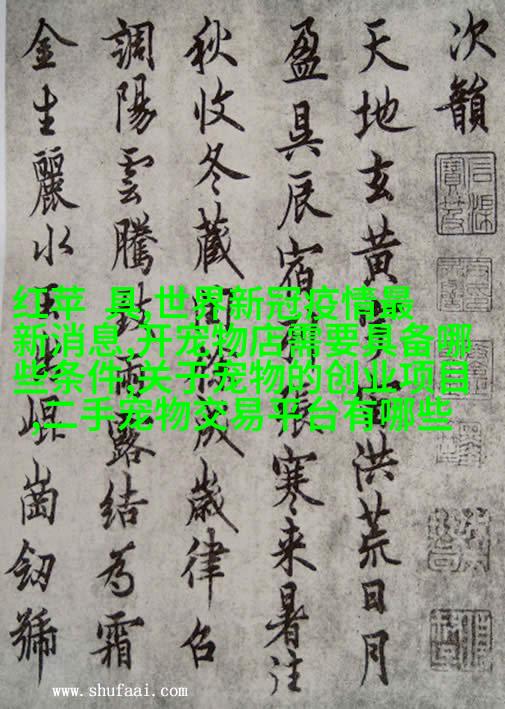 次韻
天地玄黄宇宙洪荒日月
盈昃辰宿列張寒来暑往
秋收冬藏閏餘成歲律召
調陽雲騰致雨露結為霜
金生麗水玉出崐崗劒號
红苹 具,世界新冠疫情最
新消息,开宠物店需要具备哪
些条件,关于宠物的创业项目
,二手宠物交易平台有哪些
www.shufaai.com